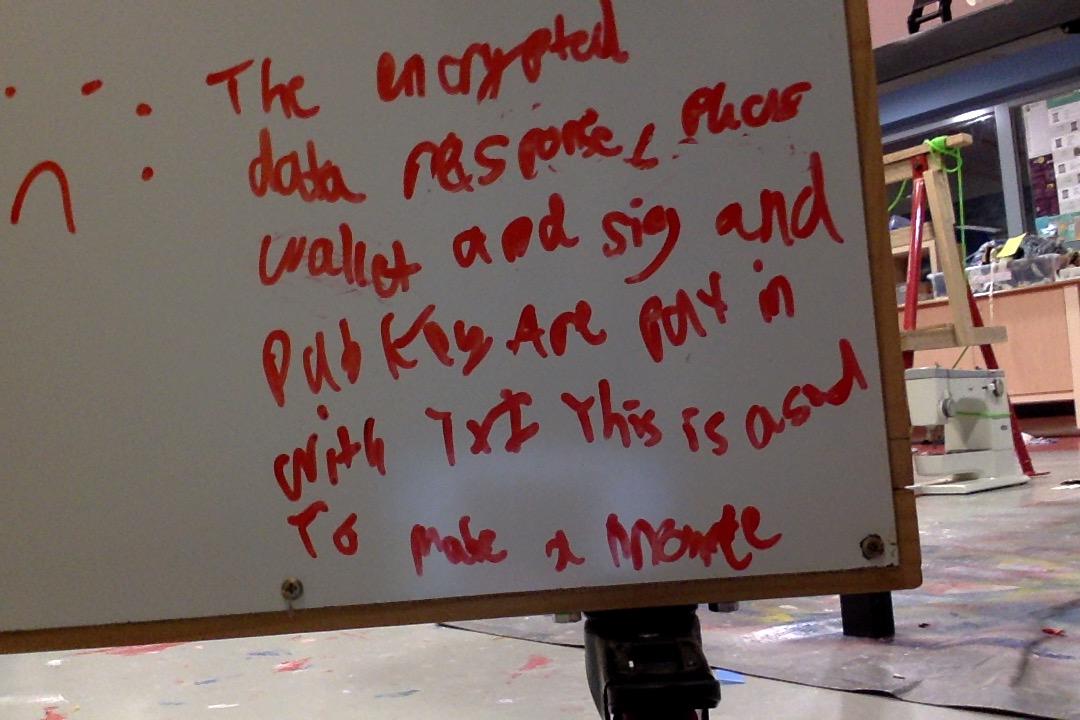 The encrypted
data response,
wallet and sig and
Pub Key Are put in
with TxI This is used
To make a